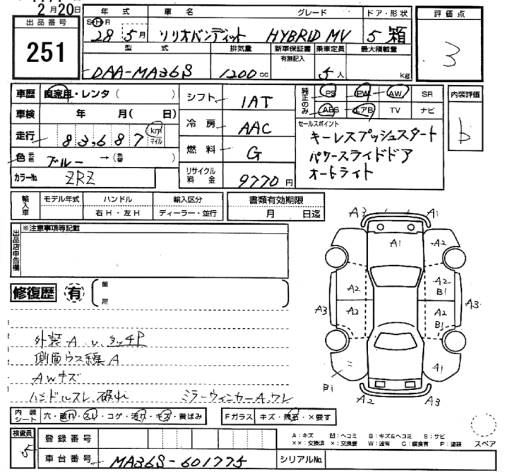 2月20日
出品番号 251
年式 車名 グレード ドア・形状
28年5月 ソリオバンディット HYBRID MV 5 箱
型式 排気量 新車保証書 有無記入 乗車定員 最大積載量
DAA-MA36S 1200cc 5人 kg
評価点
3
車歴 自家用・レンタ( )
車検 年 月( 日)
走行 83,687 km マイル
色 ブルー → (
カラーNo. ZRZ
シフト 1AT
冷房 AAC
燃料 G
リサイクル料金 9770円
純正のみ PS PW AW SR
ABS アB TV ナビ
内装評価 b
セールスポイント
キーレスプッシュスタート
パワースライドドア
オートライト
輸入車 モデル年式 ハンドル 輸入区分 書類有効期限
右H・左H ディーラー・並行 月 日迄
出品店申告欄 ※注意事項等記載
修復歴 有
外装A
側面ウス
AWキズ
ハンドルスレ
ミラーウィンカーAワレ
A3 A1 A2 A2 A2 A2 B1 A3 A3 A2 A2 B1 A1 A3
内装シート 穴・破れ・スレ・コゲ・汚れ・キズ・黄ばみ
Fガラス キズ・飛石・×要す
検査員 5
登録番号
車台番号 MA36S-601775
シリアルNo.
A:キズ U:ヘコミ B:キズ&ヘコミ S:サビ
××:交換済 ×:交換要 W:波有 C:腐食有 P:塗装
スペア